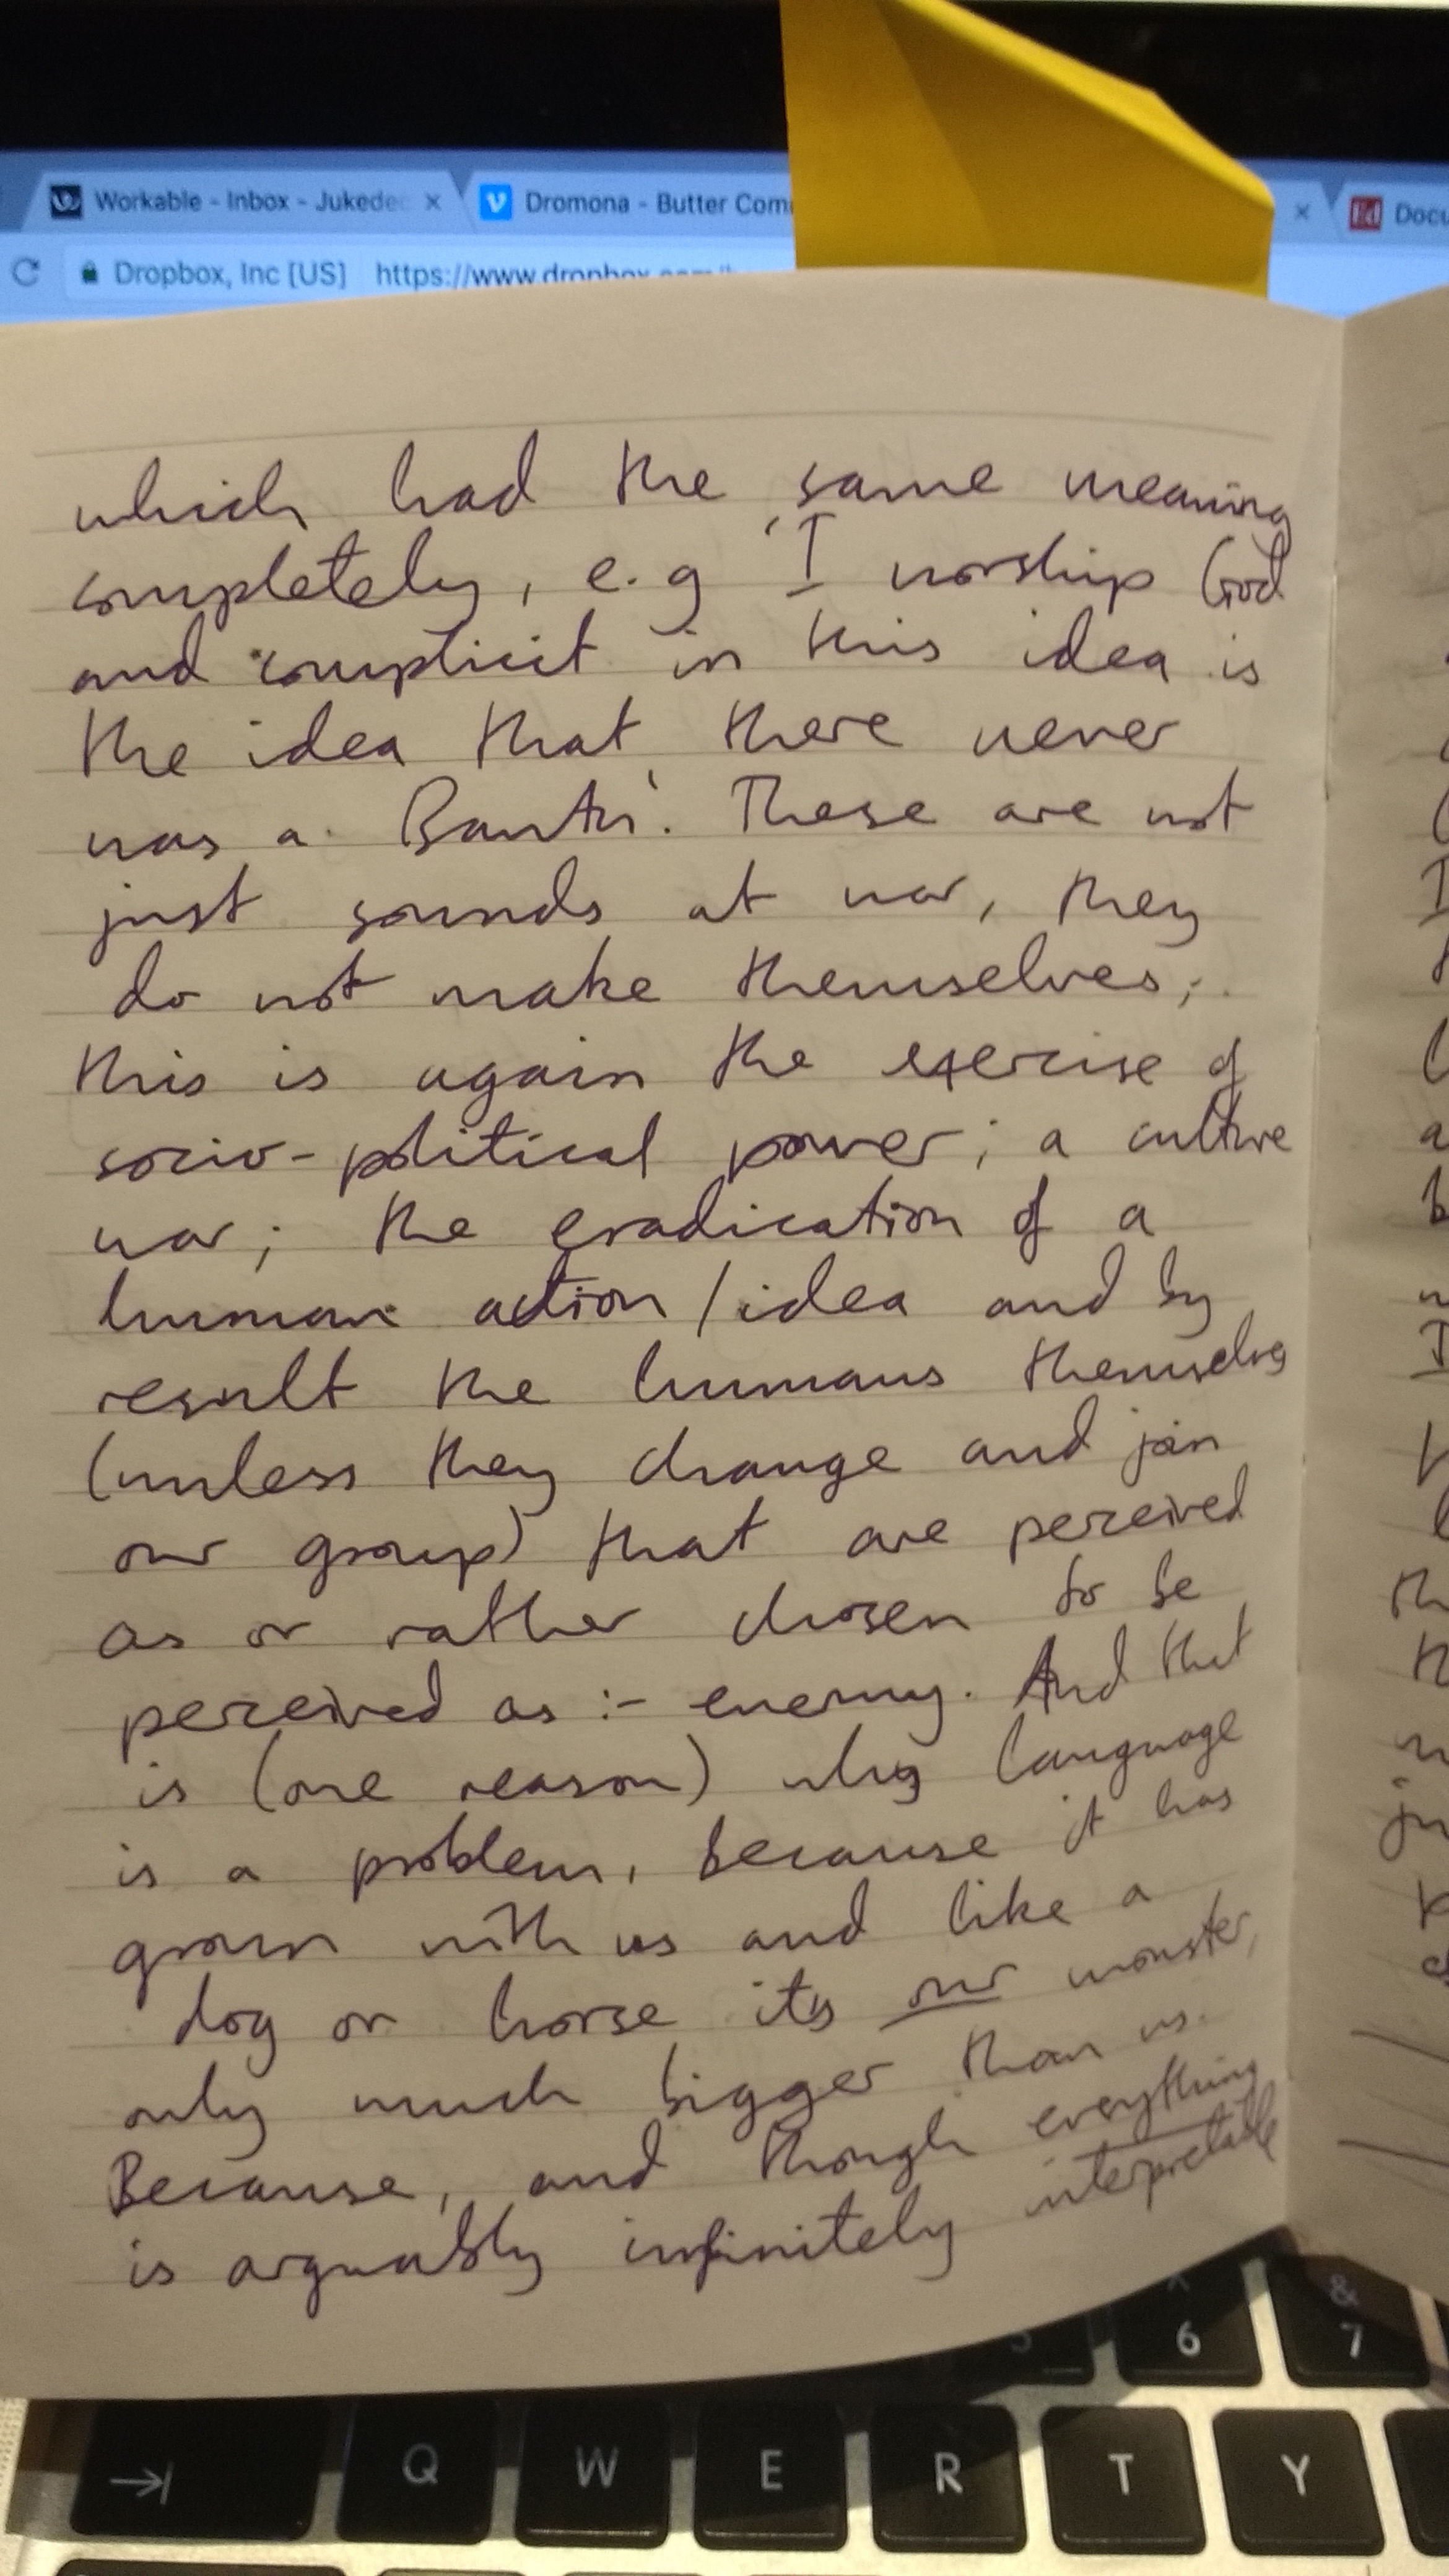 Workable - Inbox - Jukedec ×
Dromona - Butter Com
×
Ed Docu
Dropbox, Inc [US] https://www.dropbox.com
which had the same meaning
completely, e.g 'I worship God
and implicit in this idea is
the idea that there never
was a Bantu'. These are not
just sounds at war, they
do not make themselves;
this is again the exercise of
socio-political power; a culture
war; the eradication of a
human action/idea and by
result the humans themselves
(unless they change and join
our group) that are perceived
as or rather chosen to be
perceived as :- enemy. And that
is (one reason) why language
is a problem, because it has
grown with us and like a
dog or horse its our monster,
only much bigger than us.
Because, and though everything
is arguably infinitely interpretable
& 7
6
Q W E R T Y